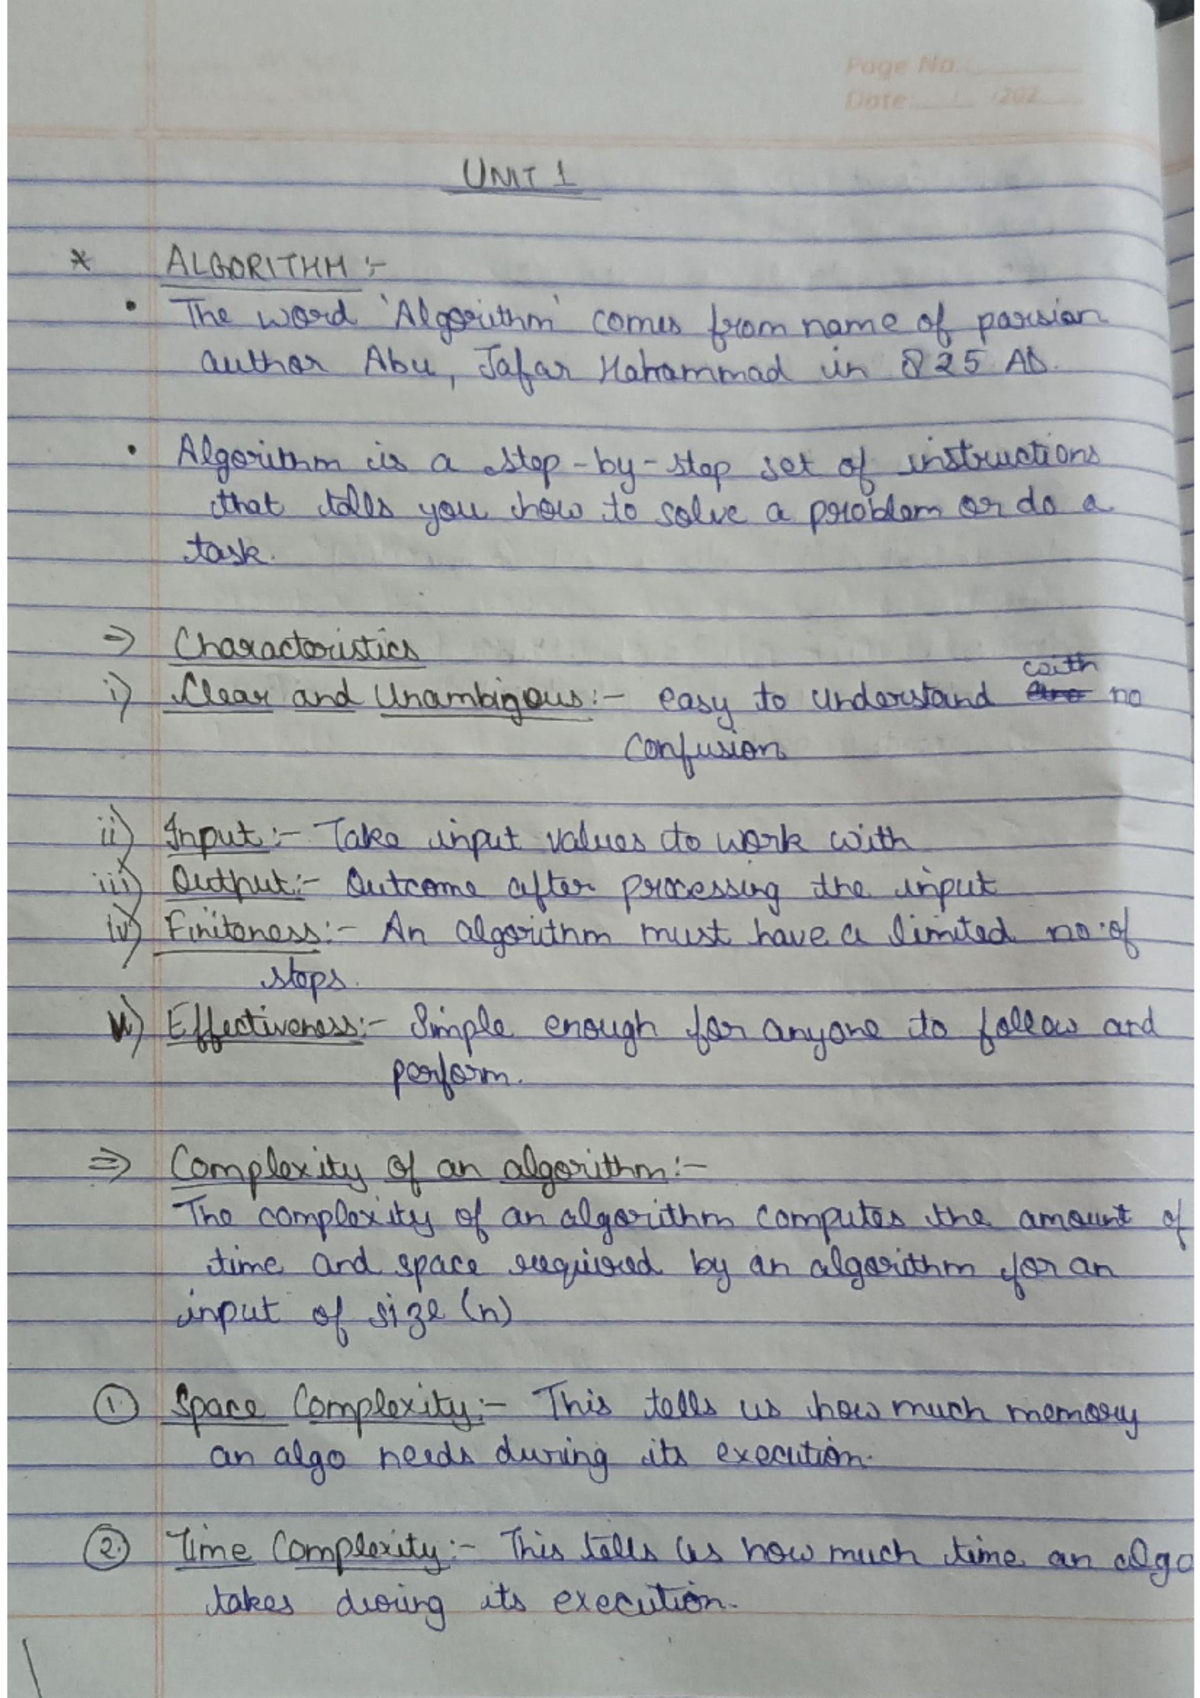 Page No.
Date: / /202
UNIT 1
* ALGORITHM :-
• The word 'Algorithm' comes from name of parsian
author Abu, Jafar Mohammad in 825 AD.
• Algorithm is a step-by-step set of instructions
that tells you how to solve a problem or do a
task.
⇒ Characteristics
i) Clear and Unambigous:- easy to understand with no
confusion
ii) Input:- Take input values to work with
iii) Output:- Outcome after processing the input
iv) Finiteness:- An algorithm must have a limited no. of
steps.
v) Effectiveness:- Simple enough for anyone to follow and
perform.
⇒ Complexity of an algorithm:-
The complexity of an algorithm computes the amount of
time and space required by an algorithm for an
input of size (n)
① Space Complexity:- This tells us how much memory
an algo needs during its execution.
② Time Complexity:- This tells us how much time an algo
takes during its execution.